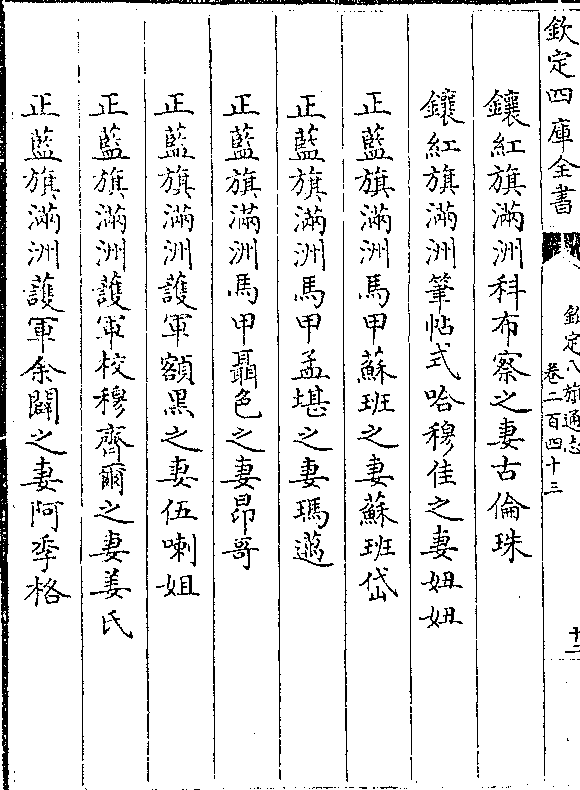 欽定四庫全書
欽定八旗通志
卷二百四十三
十二
鑲紅旗滿洲科布察之妻古倫珠
鑲紅旗滿洲筆帖式哈穆佳之妻妞妞
正藍旗滿洲馬甲蘇班之妻蘇班岱
正藍旗滿洲馬甲孟堪之妻瑪遜
正藍旗滿洲馬甲聶色之妻昂哥
正藍旗滿洲護軍額黑之妻伍喇姐
正藍旗滿洲護軍校穆齊爾之妻姜氏
正藍旗滿洲護軍余闢之妻阿季格